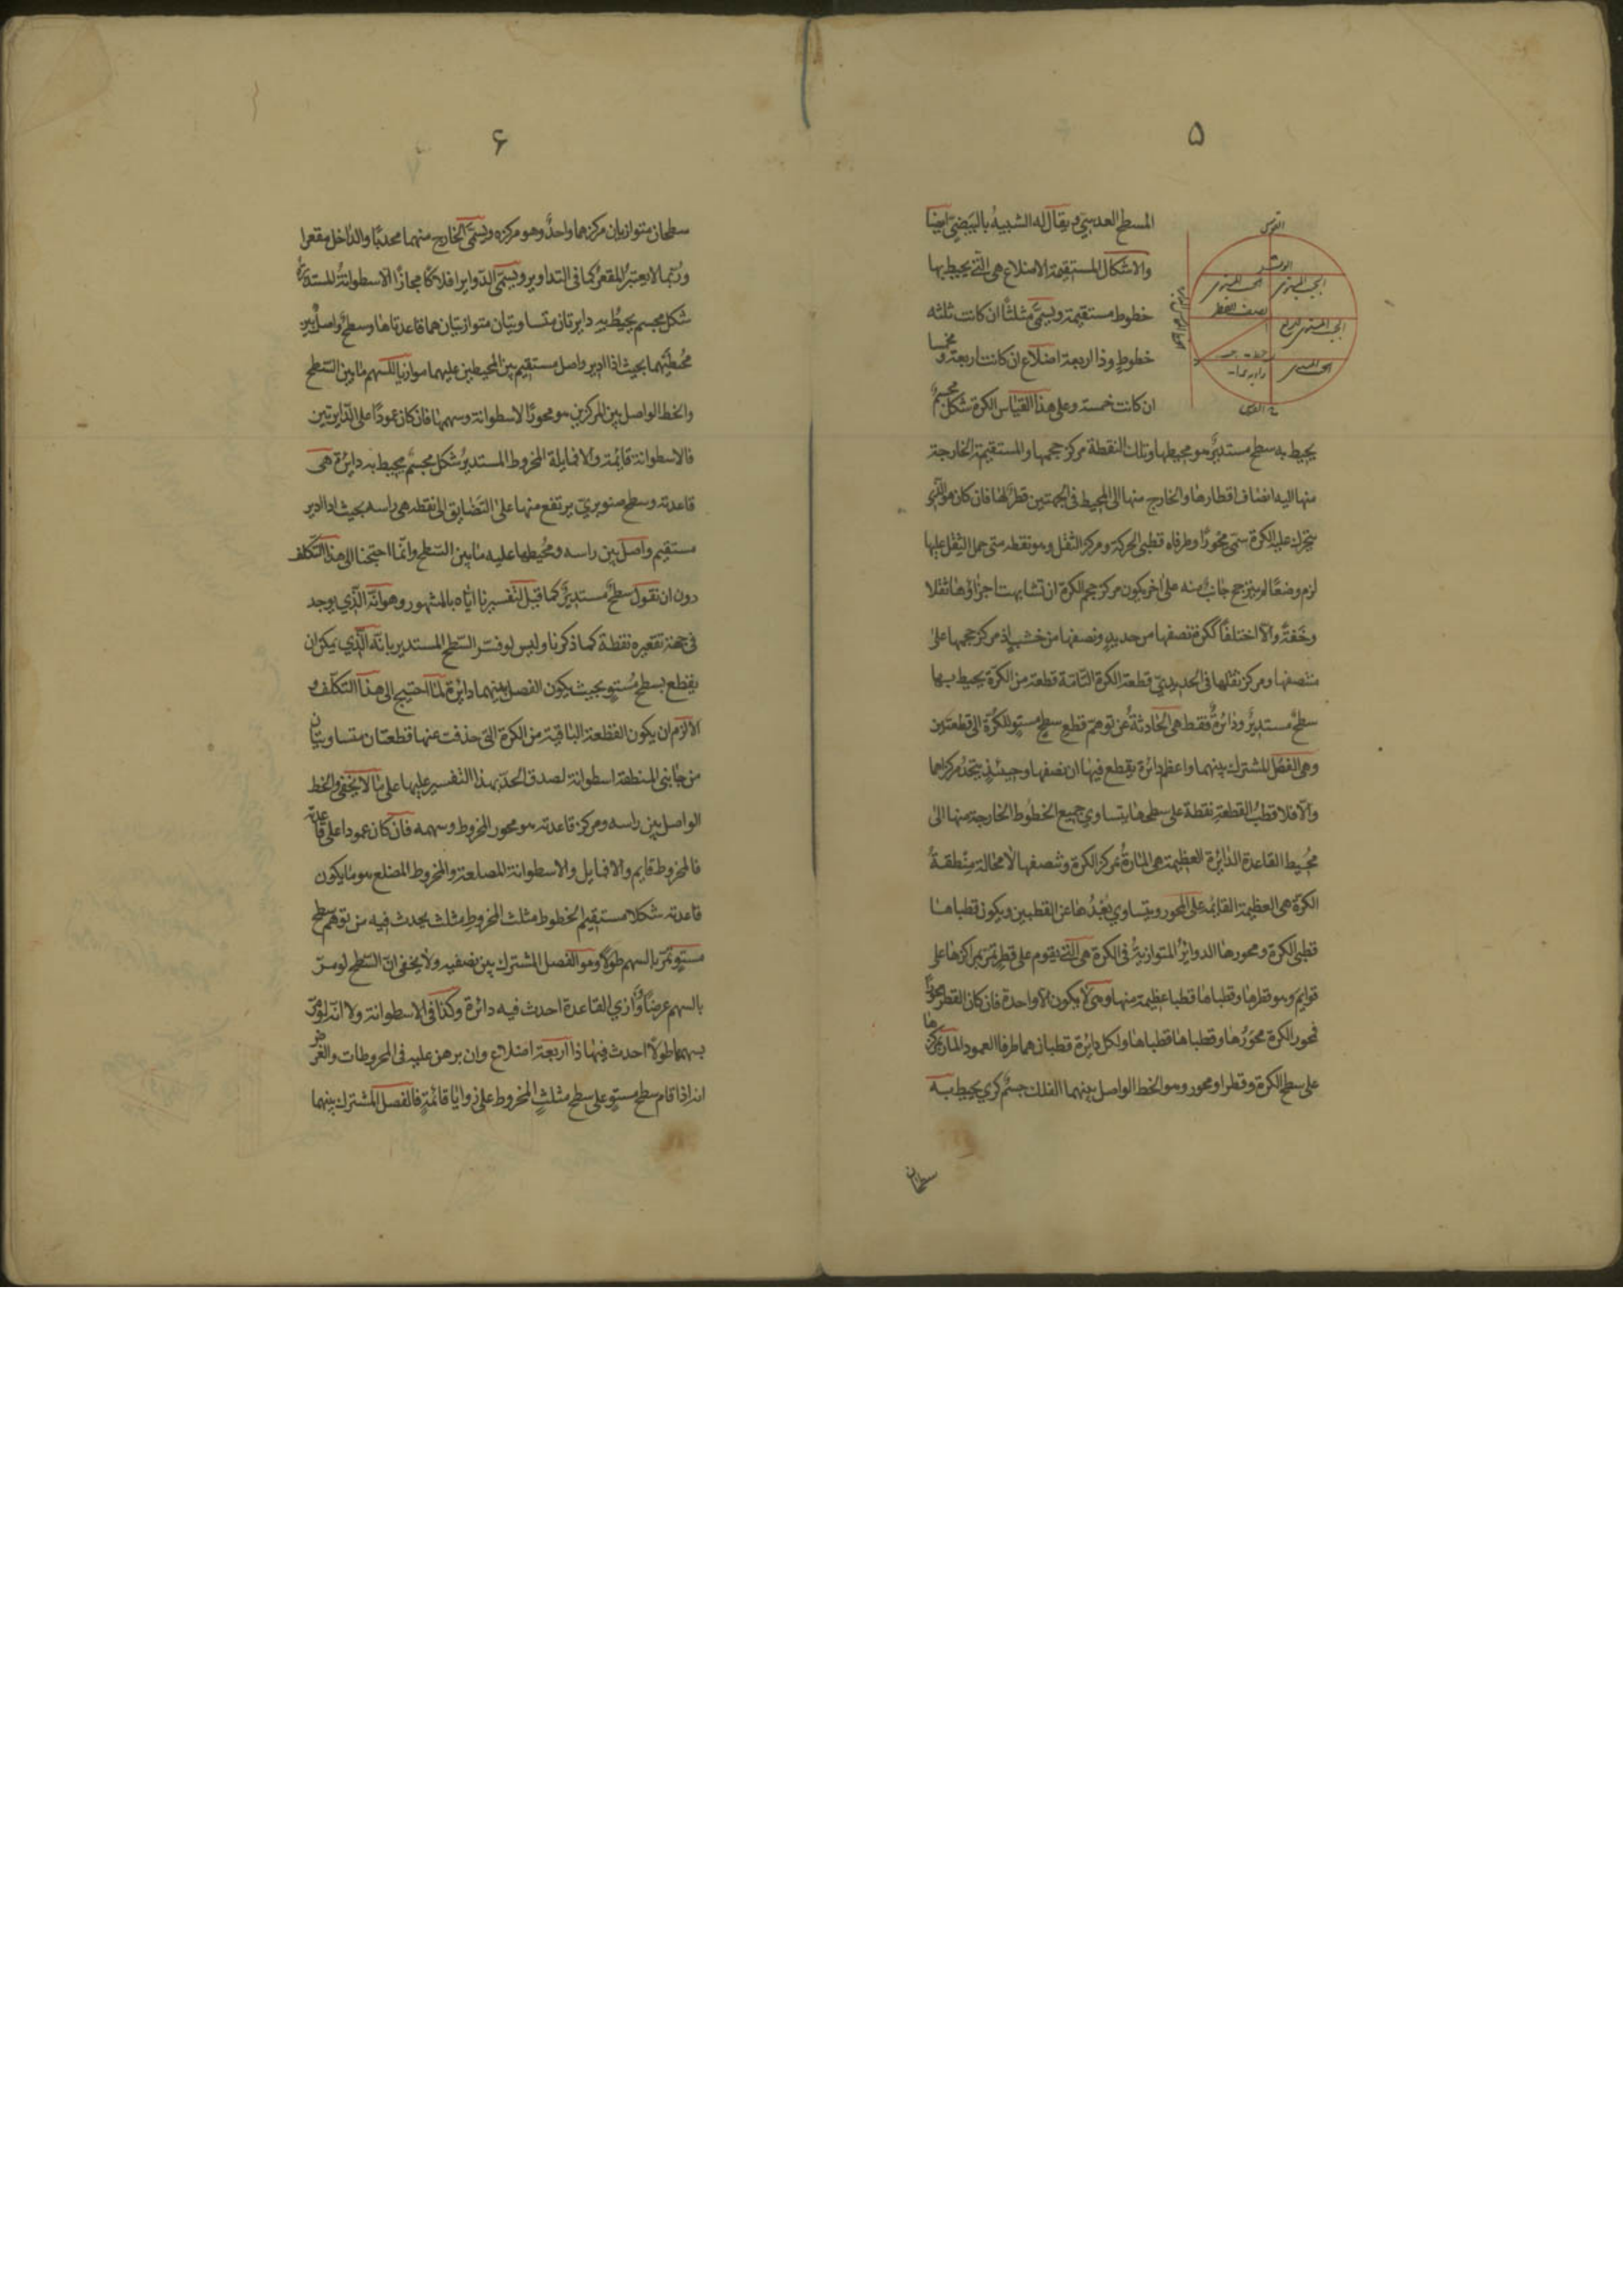 ۵
المسطح العدسي ويقال له الشبيه بالبيضي ايضا
والاشكال المستقيمة الاضلاع هي التي يحيط بها
خطوط مستقيمة ويسمى مثلثا ان كانت ثلثه
خطوط وذا اربعة اضلاع ان كانت اربعة ومخمسا
ان كانت خمسة وعلى هذا القياس الكرة شكل مجسم
يحيط به سطح مستدير هو محيطها وتلك النقطة مركز حجمها والمستقيمة الخارجة
منها اليه انصاف اقطارها والخارج منها الى المحيط في الجهتين قطر لها فان كان هو الذي
يتحرك عليه الكرة سمي محورا وطرفاه قطبي الحركة ومركز الثقل وهو نقطه متى حمل الثقل عليها
لزم وضعا لم يترجح جانب منه على اخر يكون مركز حجم الكرة ان تشابهت اجزاؤها ثقلا
وخفة والا اختلفا ككرة نصفها من حديد ونصفها من خشب اذ مركز حجمها على
منصفها ومركز ثقلها في الحديدي قطعة الكرة التامة قطعة من الكرة يحيط بها
سطح مستدير ودائرة فقط هي الحادثة عن توهم قطع سطح مستو للكرة الى قطعتين
وهي الفصل المشترك بينهما واعظم دائرة يقطع فيها ان نصفها وحينئذ يتحد مركزاهما
والا فلا قطب القطعة نقطة على سطحها يتساوي جميع الخطوط الخارجة منها الى
محيط القاعدة الدائرة العظيمة هي المارة بمركز الكرة وتنصفها لا محالة منطقة
الكرة هي العظيمة القائمه على المحور ويتساوي بعدها عن القطبين ويكون قطباها
قطبي الكرة ومحورها الدوائر المتوازية في الكرة هي التي يقوم على قطر تمر بمراكزها على
قوايم وهو قطرها وقطباها قطبا عظيمة منها وهي لا يكون الا واحدة فان كان القطر محورا
فمحور الكرة محورها وقطباها قطباها ولكل دايرة قطبان هما طرفا العمود المار بمركزها
على سطح الكرة وقطرا ومحور وهو الخط الواصل بينهما الفلك جسم كري يحيط به
سطحان
القوس
الوتر
نصف القطر
۶
سطحان متوازيان مركزهما واحد وهو مركزه ويسمى الخارج منهما محدبا والداخل مقعرا
وربما لا يعتبر المقعر كما في التداوير ويسمى الدواير افلاكا مجازا الاسطوانة المستديرة
شكل مجسم يحيط به دايرتان متساويتان متوازيتان هما قاعدتاها وسطح واصل بين
محيطيهما بحيث اذا ادير واصل مستقيم بين المحيطين عليهما موازيا للسهم ماس بين السطح
والخط الواصل بين المركزين هو محور الاسطوانة وسهمها فان كان عمودا على الدايرتين
فالاسطوانة قايمة والا فمايلة المخروط المستدير شكل مجسم يحيط به دائرة هي
قاعدته وسطح صنوبري يرتفع منها على التضايق الى نقطه هي راسه بحيث اذا ادير
مستقيم واصل بين راسه ومحيطها عليه ماس بين السطح وانما احتجنا الى هذا التكلف
دون ان نقول سطح مستدير كما قيل لتفسيرنا اياه بالمشهور وهو انه الذي يوجد
في جهة تقعيره نقطة كما ذكرنا وليس لو فسر السطح المستدير بانه الذي يمكن ان
يقطع بسطح مستو بحيث يكون الفصل بينهما دائرة لما احتيج الى هذا التكلف و
الا لزم ان يكون القطعة الباقية من الكرة التي حذفت عنها قطعتان متساويتان
من جانبي المنطقة اسطوانة لصدق الحد بهذا التفسير عليها على ما لا يخفى والخط
الواصل بين راسه ومركز قاعدته هو محور المخروط وسهمه فان كان عمودا على قاعدته
فالمخروط قايم والا فمايل والاسطوانة المضلعة والمخروط المضلع هو ما يكون
قاعدته شكلا مستقيم الخطوط مثلث المخروط مثلث يحدث فيه من توهم سطح
مستو تمر بالسهم طولا وهو الفصل المشترك بين نصفيه ولا يخفى ان السطح لو مر
بالسهم عرضا ووازي القاعدة احدث فيه دائرة وكذا في الاسطوانة ولا انه لو مر
بسهمها طولا احدث فيها ذا اربعة اضلاع وان برهن عليه في المخروطات والغرض
انه اذا قام سطح مستو على سطح مثلث المخروط على زوايا قائمة فالفصل المشترك بينهما